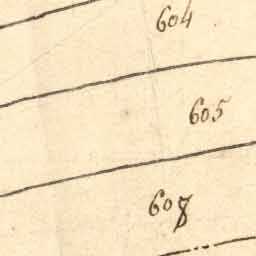 604
605
608